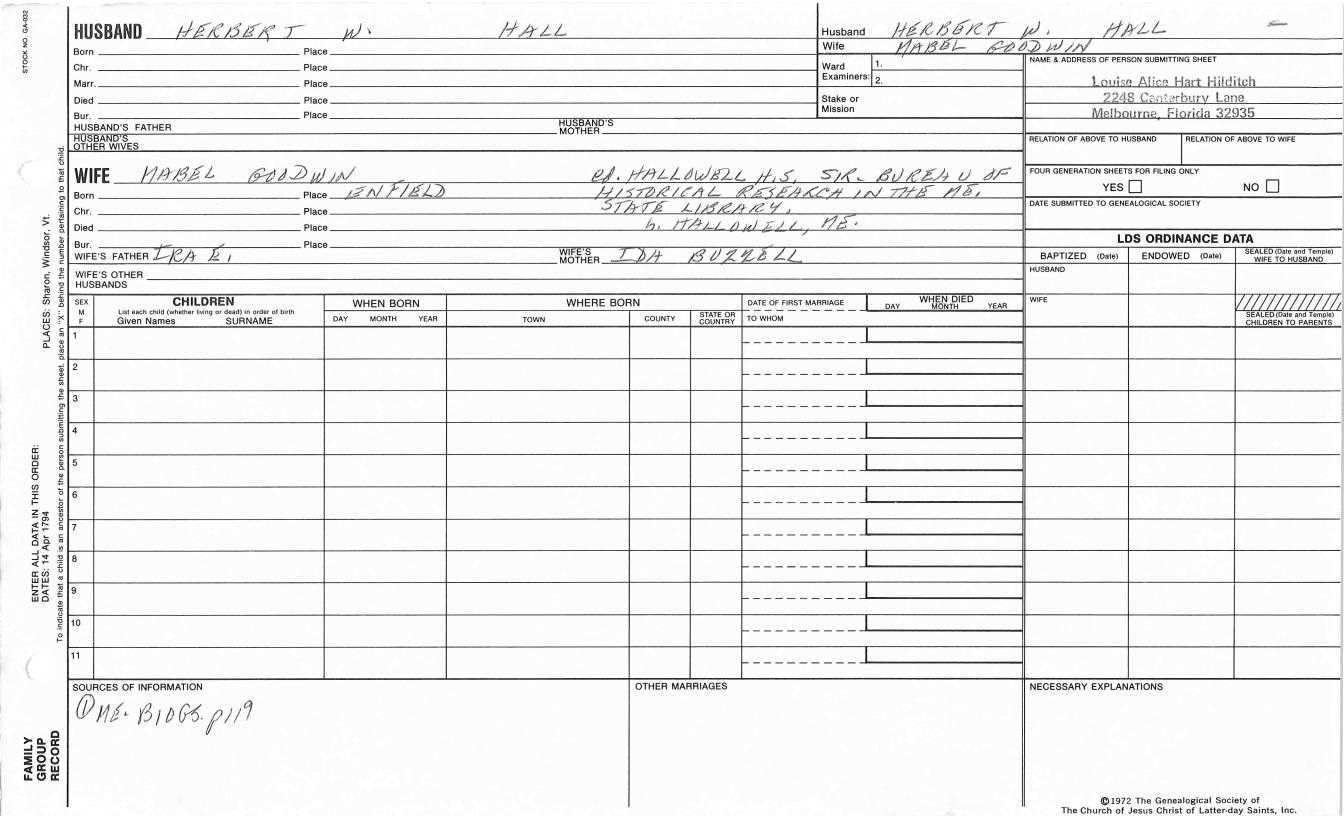 STOCK NO. GA-032
HUSBAND HERBERT W. HALL
Born Place
Chr. Place
Marr. Place
Died Place
Bur. Place
HUSBAND'S FATHER HUSBAND'S MOTHER
HUSBAND'S OTHER WIVES
Husband HERBERT W. HALL
Wife MABEL GOODWIN
Ward Examiners: 1.
2.
Stake or Mission
NAME & ADDRESS OF PERSON SUBMITTING SHEET
Louise Alice Hart Hilditch
2248 Canterbury Lane
Melbourne, Florida 32935
RELATION OF ABOVE TO HUSBAND RELATION OF ABOVE TO WIFE
FOUR GENERATION SHEETS FOR FILING ONLY
YES NO
DATE SUBMITTED TO GENEALOGICAL SOCIETY
WIFE MABEL GOODWIN ed. HALLOWELL H.S. SIR. BUREAU OF
Born Place ENFIELD HISTORICAL RESEARCH IN THE ME.
Chr. Place STATE LIBRARY.
Died Place h. HALLOWELL, ME.
Bur. Place
WIFE'S FATHER IRA E. WIFE'S MOTHER IDA BUZZELL
WIFE'S OTHER HUSBANDS
LDS ORDINANCE DATA
BAPTIZED (Date) ENDOWED (Date) SEALED (Date and Temple) WIFE TO HUSBAND
HUSBAND
WIFE
SEALED (Date and Temple) CHILDREN TO PARENTS
SEX M F
CHILDREN
List each child (whether living or dead) in order of birth
Given Names SURNAME
WHEN BORN
DAY MONTH YEAR
WHERE BORN
TOWN COUNTY STATE OR COUNTRY
DATE OF FIRST MARRIAGE
TO WHOM
WHEN DIED
DAY MONTH YEAR
1
2
3
4
5
6
7
8
9
10
11
SOURCES OF INFORMATION
① ME. BIOGS. p119
OTHER MARRIAGES
NECESSARY EXPLANATIONS
©1972 The Genealogical Society of
The Church of Jesus Christ of Latter-day Saints, Inc.
FAMILY GROUP RECORD
ENTER ALL DATA IN THIS ORDER:
DATES: 14 Apr 1794 PLACES: Sharon, Windsor, Vt.
To indicate that a child is an ancestor of the person submitting the sheet, place an "X" behind the number pertaining to that child.